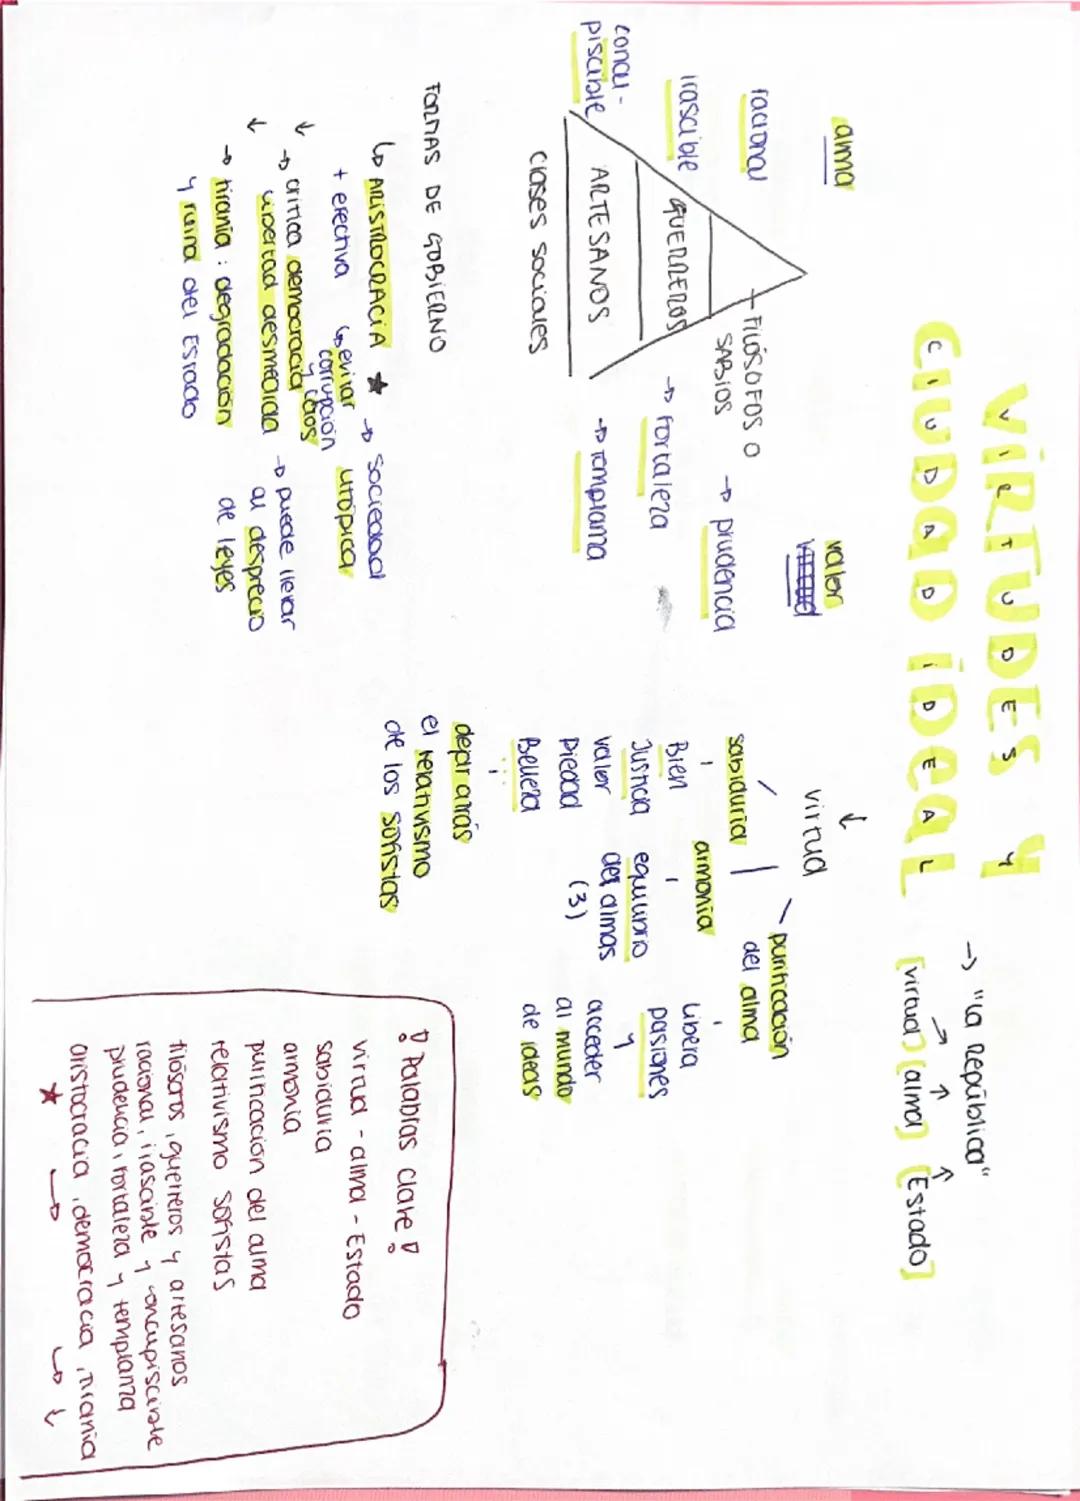 VIRTUDES Y
CIUDAD IDEAL
→ "La República"
[virtud] [alma] [Estado]
alma
racional
irascible
concu-
piscible
FILÓSOFOS O
SABIOS
GUERREROS
ARTESANOS
clases sociales
valor
→ prudencia
→ Fortaleza
→ Templama
FORMAS DE GOBIERNO
↳ ARISTROCRACIA ★ → sociedad
utópica
+ efectiva ↳ evitar
corrupción
y caos
→ crítica democracia
libertad desmedida → puede llevar
al desprecio
de leyes
→ tiranía: degradación
y ruina del Estado
↓
virtud
sabiduría
Bien
Justicia
valor
Piedad
Belleza
armonía
equilibrio
del almas
(3)
purificación
del alma
libera
pasiones
y
acceder
al mundo
de ideas
depr atrás
el relativismo
de los sofistas
! Palabras clave !
virtud - alma - Estado
sabiduría
armonía
purificación del alma
relativismo sofistas
filósofos, guerreros y artesanos
racional, irascible y concupiscible
prudencia, fortaleza y templanza
aristocracia, democracia, tiranía
★ → ↳ ↓